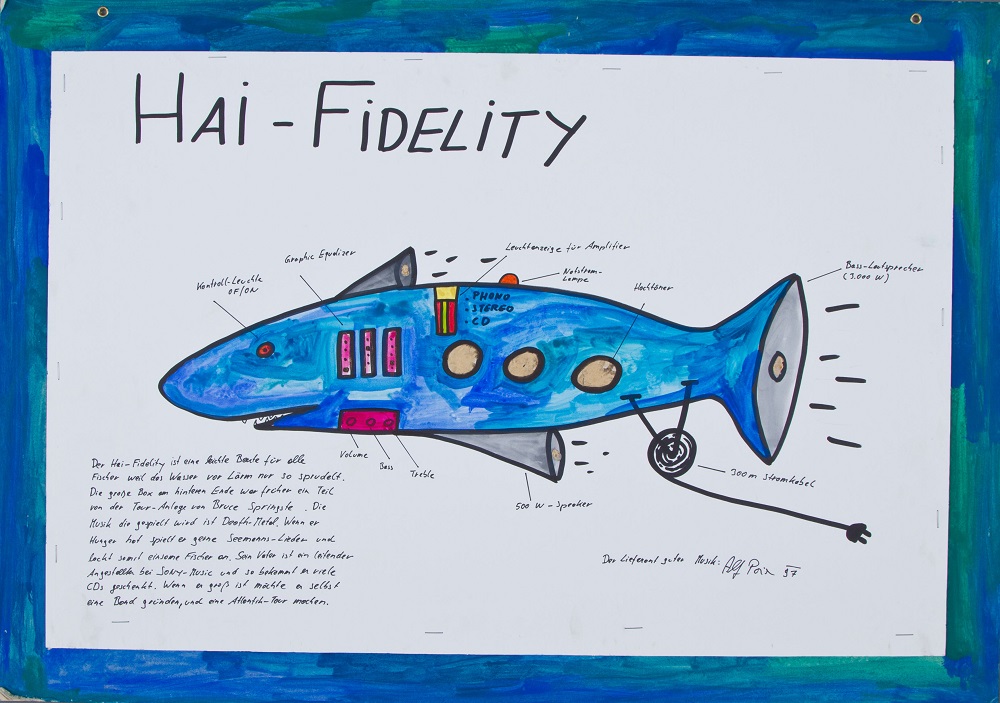 HAi - FiDELiTY
Leuchtanzeige für Amplifier
Graphic Equalizer
Notstrom-
Lampe
Bass-Lautsprecher
(3.000 W)
Kontroll-Leuchte
OF/ON
Hochtöner
• PHONO
• STEREO
• CD
Volume
Bass
Treble
300 m Stromkabel
500 W - Speaker
Der Hai-Fidelity ist eine leichte Beute für alle
Fischer weil das Wasser vor Lärm nur so sprudelt.
Die große Box am hinteren Ende war früher ein Teil
von der Tour-Anlage von Bruce Springste . Die
Musik die gespielt wird ist Death-Metal. Wenn er
Hunger hat spielt er gerne Seemanns-Lieder und
lockt somit einsame Fischer an. Sein Vater ist ein leitender
Angestellter bei SONY-Music und so bekommt er viele
CDs geschenkt. Wenn er groß ist möchte er selbst
eine Band gründen, und eine Atlantik-Tour machen.
Der Lieferant guter Musik: Alf 97